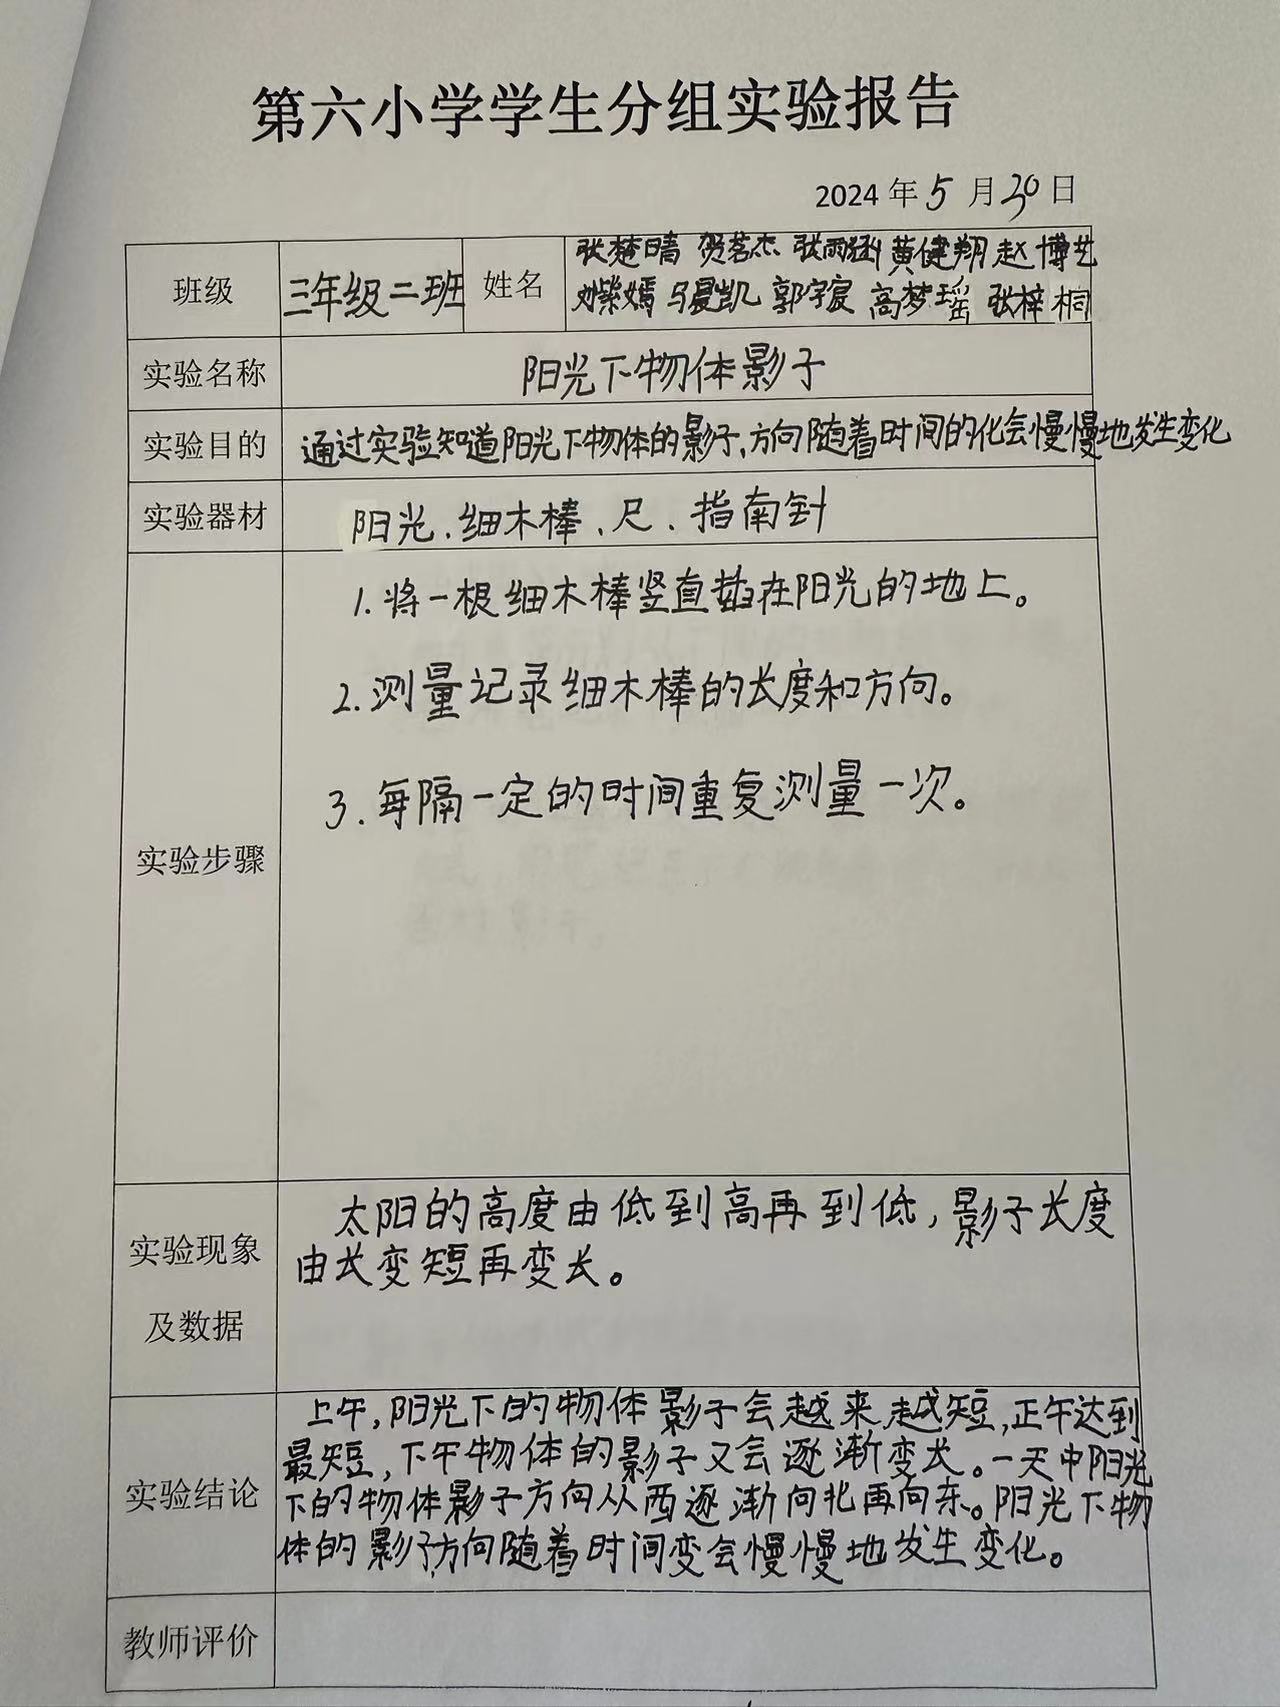 第六小学学生分组实验报告
2024 年 5 月 30 日
班级 三年级二班 姓名 张楚晴 贺茗杰 张雨涵 黄健翔 赵博艺
刘紫嫣 马晨凯 郭宇宸 高梦瑶 张梓桐
实验名称 阳光下物体影子
实验目的 通过实验知道阳光下物体的影子,方向随着时间的化会慢慢地发生变化
实验器材 阳光、细木棒、尺、指南针
实验步骤
1.将一根细木棒竖直插在阳光的地上。
2.测量记录细木棒的长度和方向。
3.每隔一定的时间重复测量一次。
实验现象
及数据
太阳的高度由低到高再到低,影子长度
由长变短再变长。
实验结论
上午,阳光下的物体影子会越来越短,正午达到
最短,下午物体的影子又会逐渐变长。一天中阳光
下的物体影子方向从西逐渐向北再向东。阳光下物
体的影子方向随着时间变会慢慢地发生变化。
教师评价